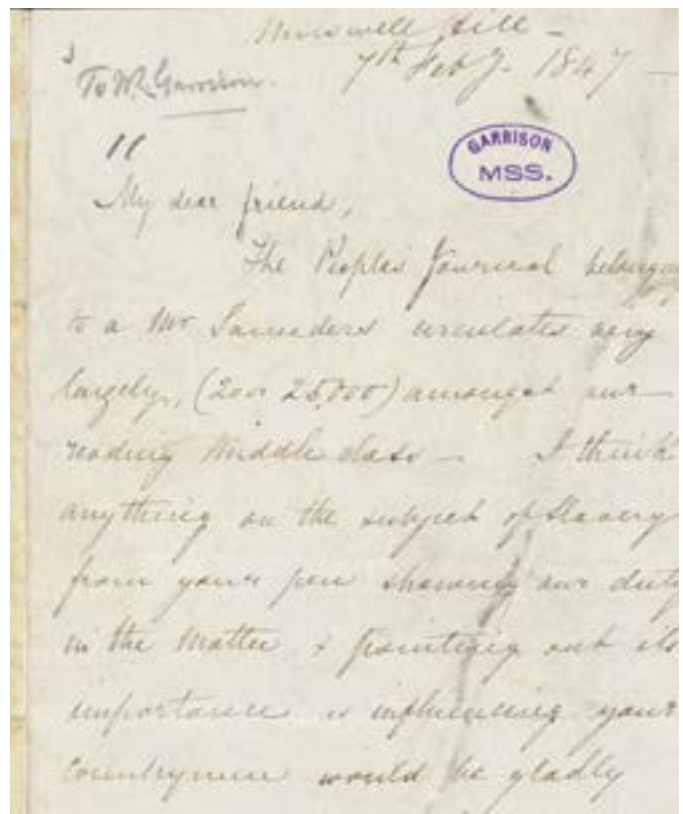 Muswell Hill -
7th Feby. 1847 —
To W.L. Garrison.
GARRISON
MSS.
My dear friend,
The Peoples Journal belongs
to a Mr Saunders circulates very
largely, (20 or 25,000) amongst our —
reading Middle class — I think
anything on the subject of Slavery
from your pen showing our duty
in the matter & pointing out its
importance in influencing your
Countrymen would be gladly